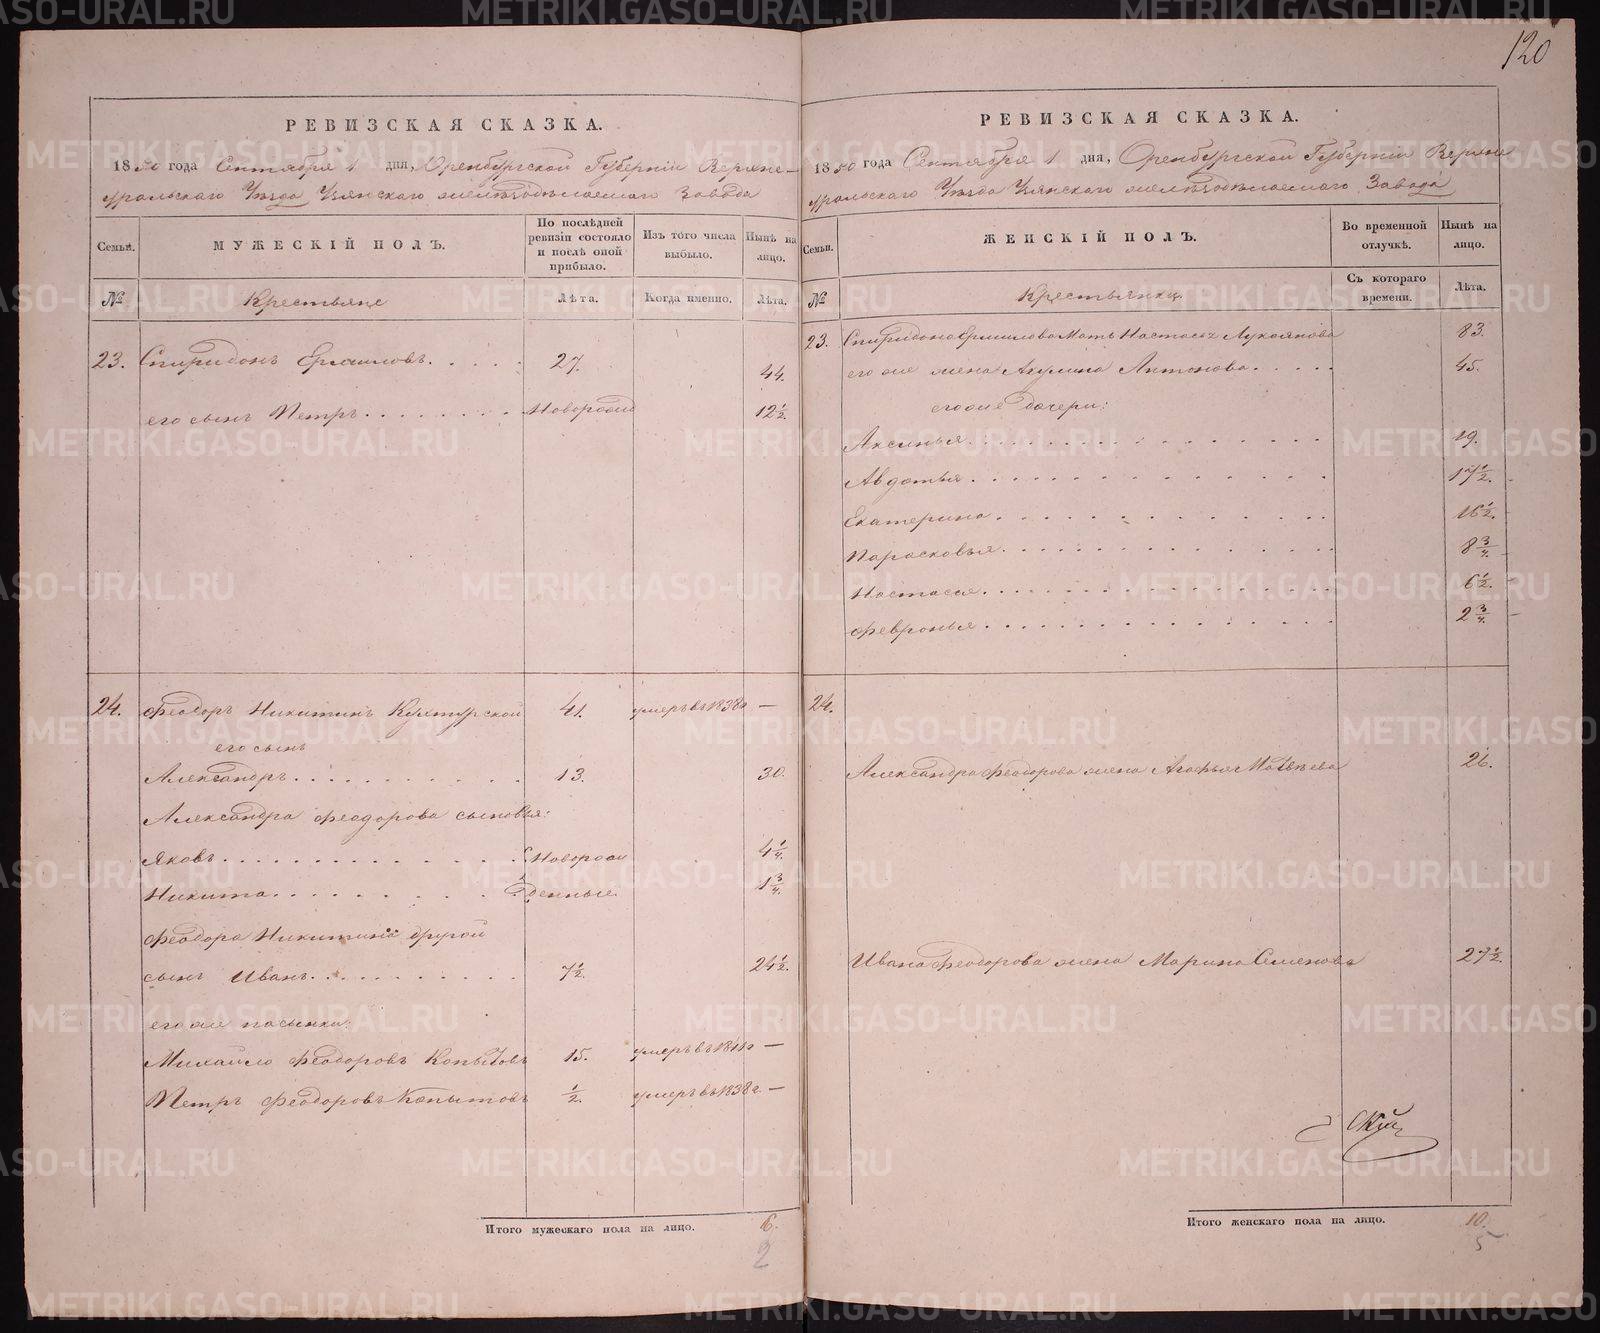 120
РЕВИЗСКАЯ СКАЗКА.
1850 года Сентября 1 дня, Оренбургской Губерніи Верхне-
уральскаго Уѣзда Узянскаго желѣзодѣлаемаго Завода
Семьи.
МУЖЕСКІЙ ПОЛЪ.
По послѣдней ревизіи состояло и послѣ оной прибыло.
Изъ того числа выбыло.
Нынѣ на лицо.
№
Крестьяне
Лѣта.
Когда именно.
Лѣта.
23. Спиридонъ Ермиловъ. 27. 44.
его сынъ Петръ Новорожд 12½.
24. Феодоръ Никитинъ Кухтурской 41. умеръ въ 1838г —
его сынъ
Александръ 13. 30.
Александра Феодорова сыновья:
Яковъ Новорож 4¼.
Никита денные 1¾.
Феодора Никитина другой
сынъ Иванъ 7½. 24½.
его же пасынки:
Михайло Феодоровъ Копытовъ 15. умеръ въ —
Петръ Феодоровъ Копытовъ ½. умеръ въ 1838г —
Итого мужескаго пола на лицо. 6.
2
РЕВИЗСКАЯ СКАЗКА.
1850 года Сентября 1 дня, Оренбургской Губерніи Верхне
уральскаго Уѣзда Узянскаго желѣзодѣлаемаго Завода
Семьи.
ЖЕНСКІЙ ПОЛЪ.
Во временной отлучкѣ.
Нынѣ на лицо.
№
Крестьянки
Съ котораго времени.
Лѣта.
23. Спиридона Ермилова Мать Настасья Лукоянова 83.
его же жена Акулина Антонова 45.
его же дочери:
Аксинья 19.
Авдотья 17½.
Екатерина 16½.
Парасковья 8¾.
Настасья 6½.
Февронья 2¾.
24.
Александра Феодорова жена Агафья Матвѣева 26.
Ивана Феодорова жена Марина Семенова 27½.
Итого женскаго пола на лицо. 10.
5
METRIKI.GASO-URAL.RU